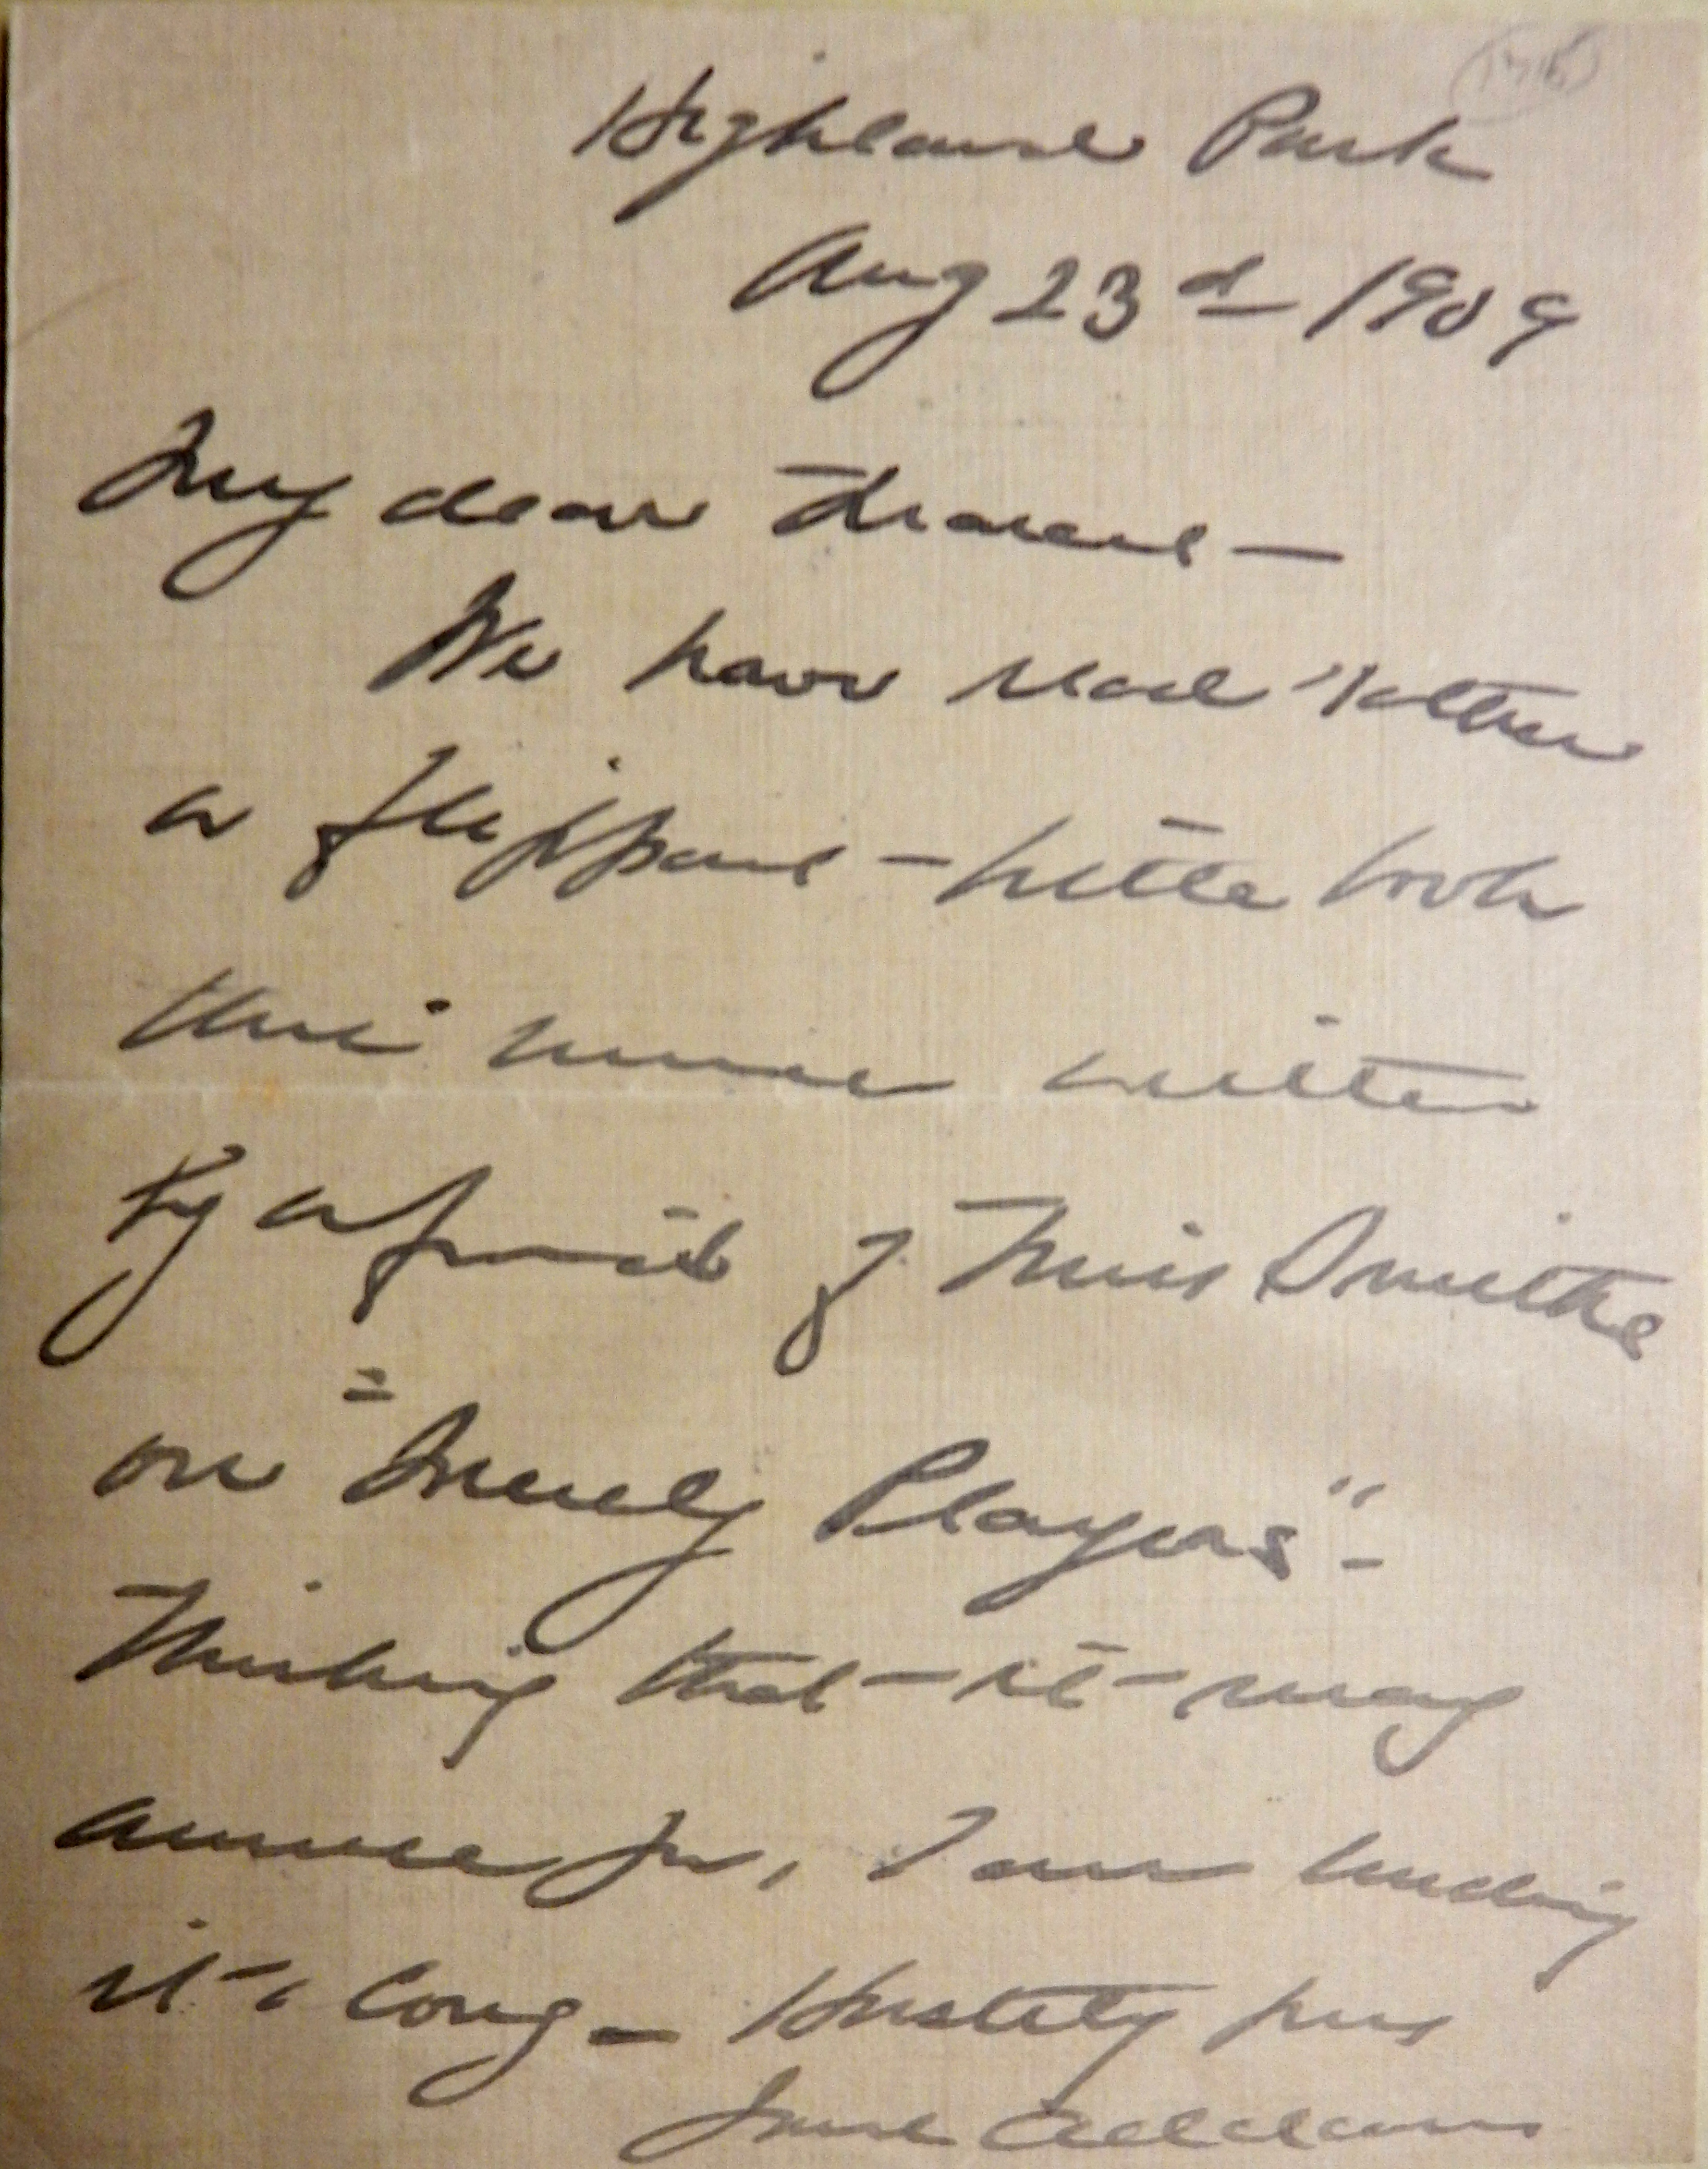 Highland Park
Aug 23d 1909
My dear
We have read rather
a flippant little book
this summer written
by a friend of Miss Smith's
on "Merely Players" -
Thinking that it may
amuse you, I am sending
it along - Hastily yours
Jane Addams